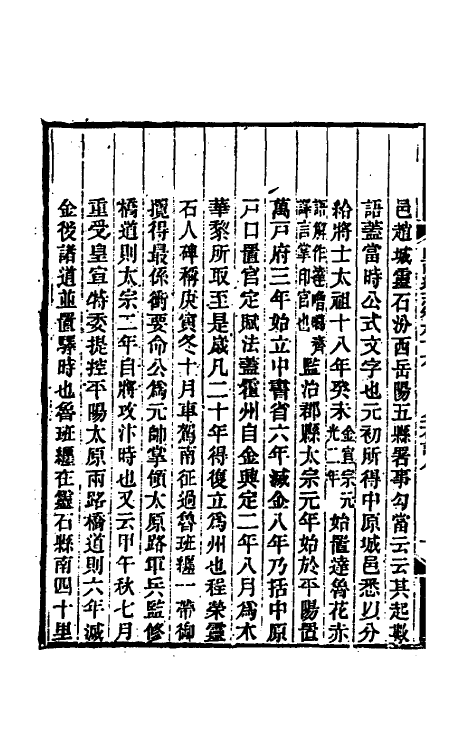 邑趙城靈石汾西岳陽五縣署事勾當云云其起數
語蓋當時公式文字也元初所得中原城邑悉以分
給將士太祖十八年癸未金宣宗元光二年始置達魯花赤
語解作達嚕噶齊譯言掌印官也監治郡縣太宗元年始於平陽置
萬戸府三年始立中書省六年滅金八年乃括中原
戸口置官定賦法蓋霍州自金興定二年八月爲木
華黎所取至是歲凡二十年得復立爲州也程榮靈
石人碑稱庚寅冬十月車駕南征過魯班纏一帶御
攬得最係衝要命公爲元帥掌領太原路軍兵監修
橋道則太宗二年自將攻汴時也又云甲午秋七月
重受皇宣特委提控平陽太原兩路橋道則六年滅
金後諸道並置驛時也魯班纏在靈石縣南四十里